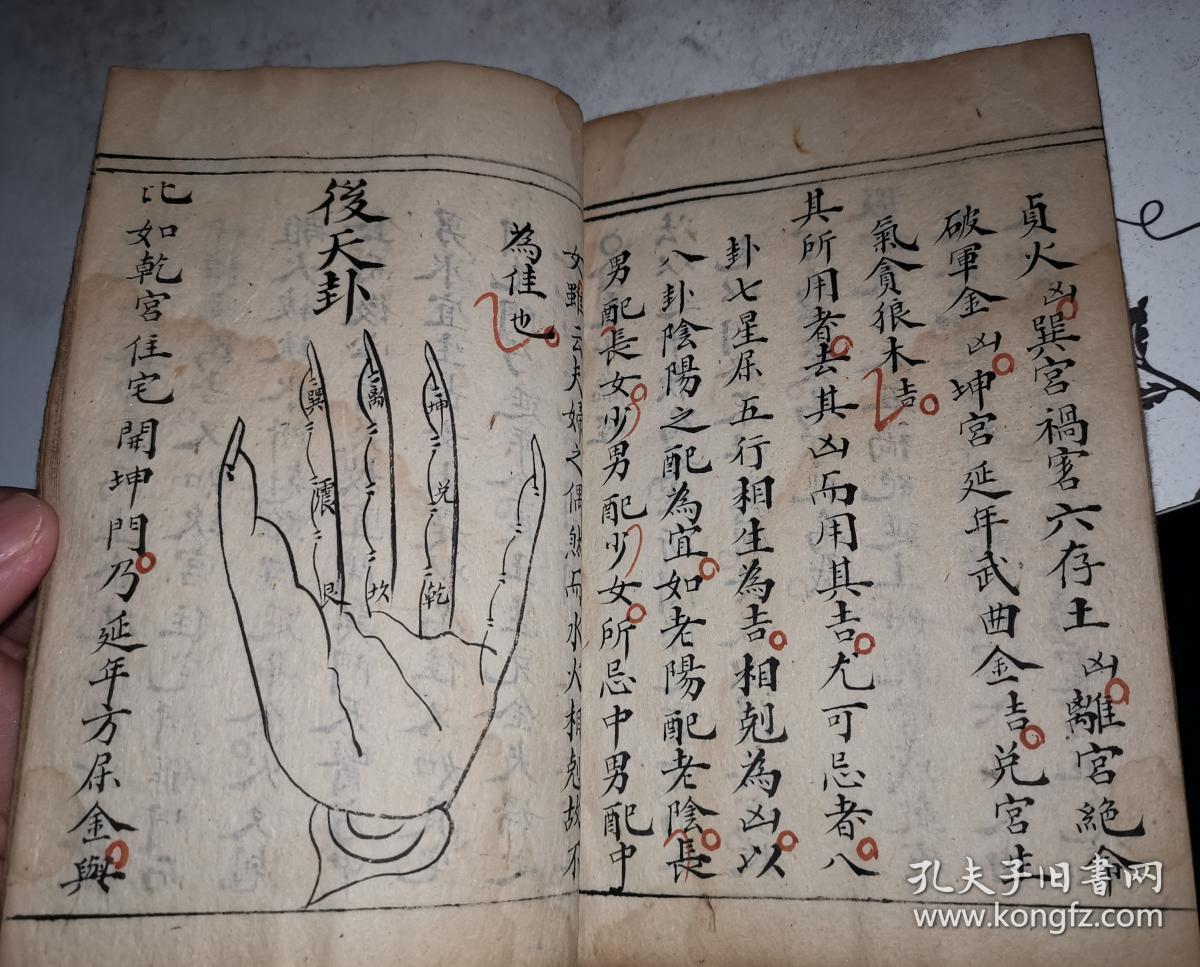 貞火凶巽宮禍害六存土凶離宮絕命
破軍金凶坤宮延年武曲金吉兌宮生
氣貪狼木吉
其所用者去其凶而用其吉尤可忌者八
卦七星屬五行相生為吉相剋為凶以
八卦陰陽之配為宜如老陽配老陰長
男配長女少男配少女所忌中男配中
女雖云夫婦之偶然而水火相剋故不
為佳也
後天卦
坤
兌
乾
離
坎
巽
震
艮
比如乾宮住宅開坤門乃延年方屬金與
孔夫子旧书网
www.kongfz.com